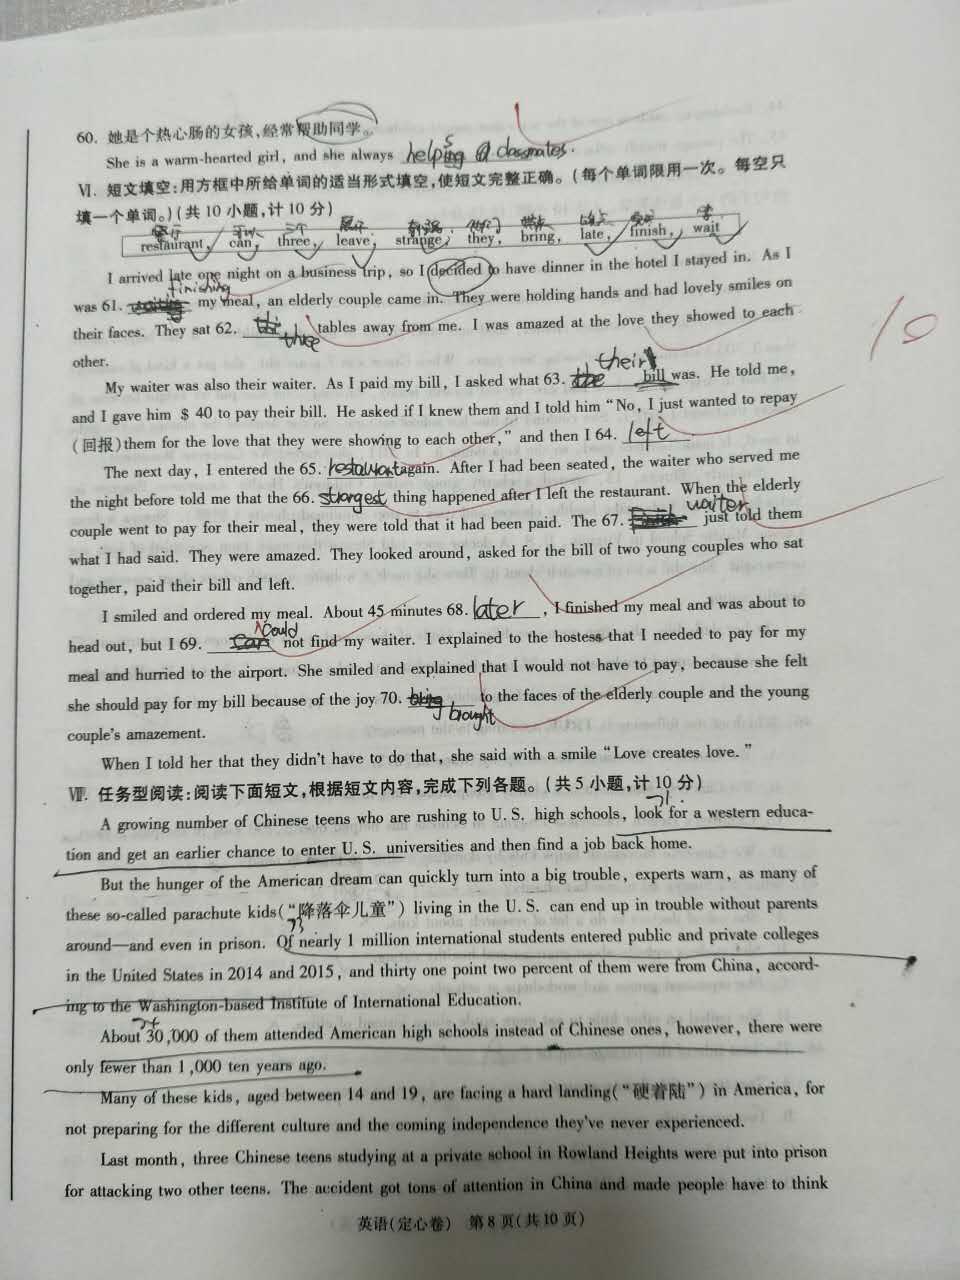 60. 她是个热心肠的女孩,经常帮助同学。
She is a warm-hearted girl, and she always helping classmates.
Ⅵ. 短文填空:用方框中所给单词的适当形式填空,使短文完整正确。(每个单词限用一次。每空只
填一个单词。)(共 10 小题,计 10 分)
restaurant, can, three, leave, strange, they, bring, late, finish, wait
I arrived late one night on a business trip, so I decided to have dinner in the hotel I stayed in. As I
finishing
was 61. my meal, an elderly couple came in. They were holding hands and had lovely smiles on
their faces. They sat 62. three tables away from me. I was amazed at the love they showed to each
other.
10
My waiter was also their waiter. As I paid my bill, I asked what 63. their bill was. He told me,
and I gave him $ 40 to pay their bill. He asked if I knew them and I told him “No, I just wanted to repay
(回报)them for the love that they were showing to each other,” and then I 64. left
The next day, I entered the 65. restaurant again. After I had been seated, the waiter who served me
the night before told me that the 66. strangest thing happened after I left the restaurant. When the elderly
couple went to pay for their meal, they were told that it had been paid. The 67. waiter just told them
what I had said. They were amazed. They looked around, asked for the bill of two young couples who sat
together, paid their bill and left.
I smiled and ordered my meal. About 45 minutes 68. later , I finished my meal and was about to
head out, but I 69. could not find my waiter. I explained to the hostess that I needed to pay for my
meal and hurried to the airport. She smiled and explained that I would not have to pay, because she felt
she should pay for my bill because of the joy 70. brought to the faces of the elderly couple and the young
couple's amazement.
When I told her that they didn't have to do that, she said with a smile “Love creates love.”
Ⅶ. 任务型阅读:阅读下面短文,根据短文内容,完成下列各题。(共 5 小题,计 10 分)
71
A growing number of Chinese teens who are rushing to U. S. high schools, look for a western educa-
tion and get an earlier chance to enter U. S. universities and then find a job back home.
But the hunger of the American dream can quickly turn into a big trouble, experts warn, as many of
these so-called parachute kids(“降落伞儿童”) living in the U. S. can end up in trouble without parents
73
around—and even in prison. Of nearly 1 million international students entered public and private colleges
in the United States in 2014 and 2015, and thirty one point two percent of them were from China, accord-
ing to the Washington-based Institute of International Education.
About 30,000 of them attended American high schools instead of Chinese ones, however, there were
only fewer than 1,000 ten years ago.
Many of these kids, aged between 14 and 19, are facing a hard landing(“硬着陆”) in America, for
not preparing for the different culture and the coming independence they've never experienced.
Last month, three Chinese teens studying at a private school in Rowland Heights were put into prison
for attacking two other teens. The accident got tons of attention in China and made people have to think
英语(定心卷) 第 8 页(共 10 页)